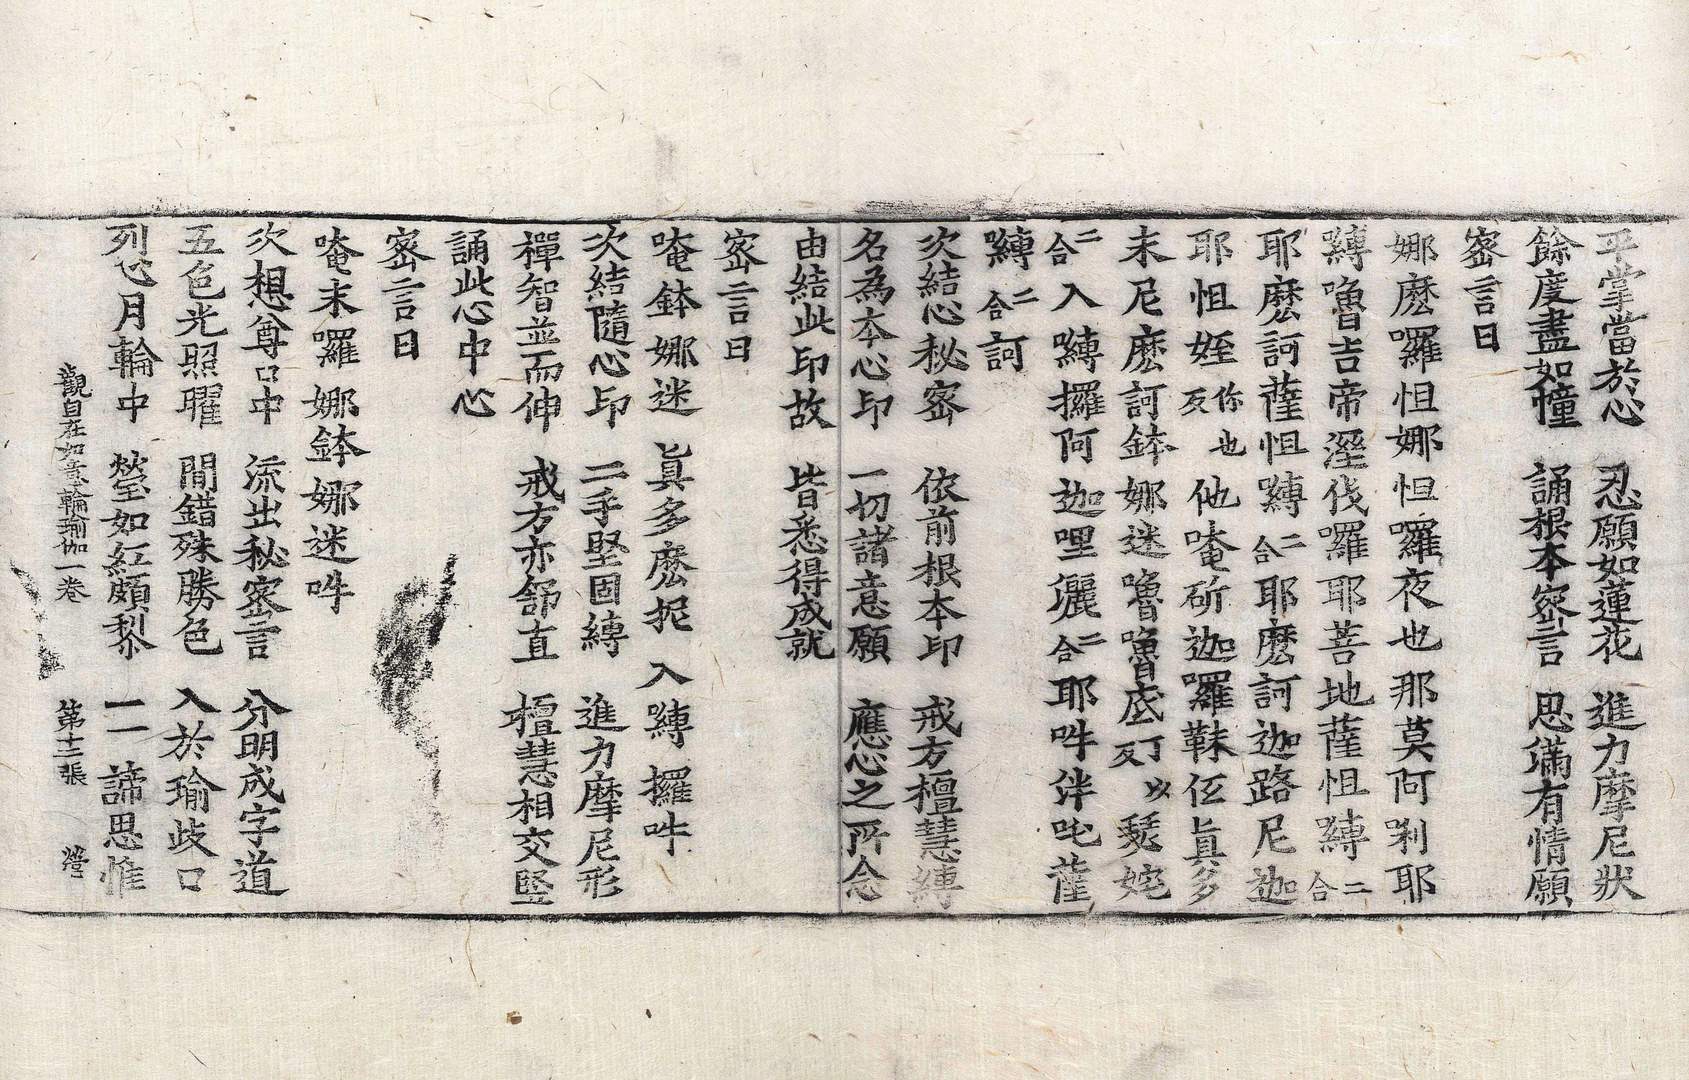 平掌當於心　忍願如蓮花　進力摩尼狀
餘度盡如幢　誦根本密言　思滿有情願
密言曰
娜麼囉怛娜怛囉夜也那莫阿唎耶
嚩嚕吉帝溼伐囉耶菩地薩怛嚩二合
耶麼訶薩怛嚩二合耶麼訶迦路尼迦
耶怛姪你也反他唵斫迦囉靺㐌眞多
末尼麼訶鉢娜迷嚕嚕底丁以反瑟姹
二合入嚩攞阿迦哩灑二合耶吽泮吒薩
嚩二合訶
次結心秘密　依前根本印　戒方檀慧縛
名為本心印　一切諸意願　應心之所念
由結此印故　皆悉得成就
密言曰
唵鉢娜迷　眞多麼抳　入嚩攞吽
次結隨心印　二手堅固縛　進力摩尼形
禪智並而伸　戒方亦舒直　檀慧相交竪
誦此心中心
密言曰
唵末囉娜鉢娜迷吽
次想尊口中　流出秘密言　分明成字道
五色光照曜　間錯殊勝色　入於瑜歧口
列心月輪中　瑩如紅頗梨　一一諦思惟
觀自在如意輪瑜伽一卷　第十二張